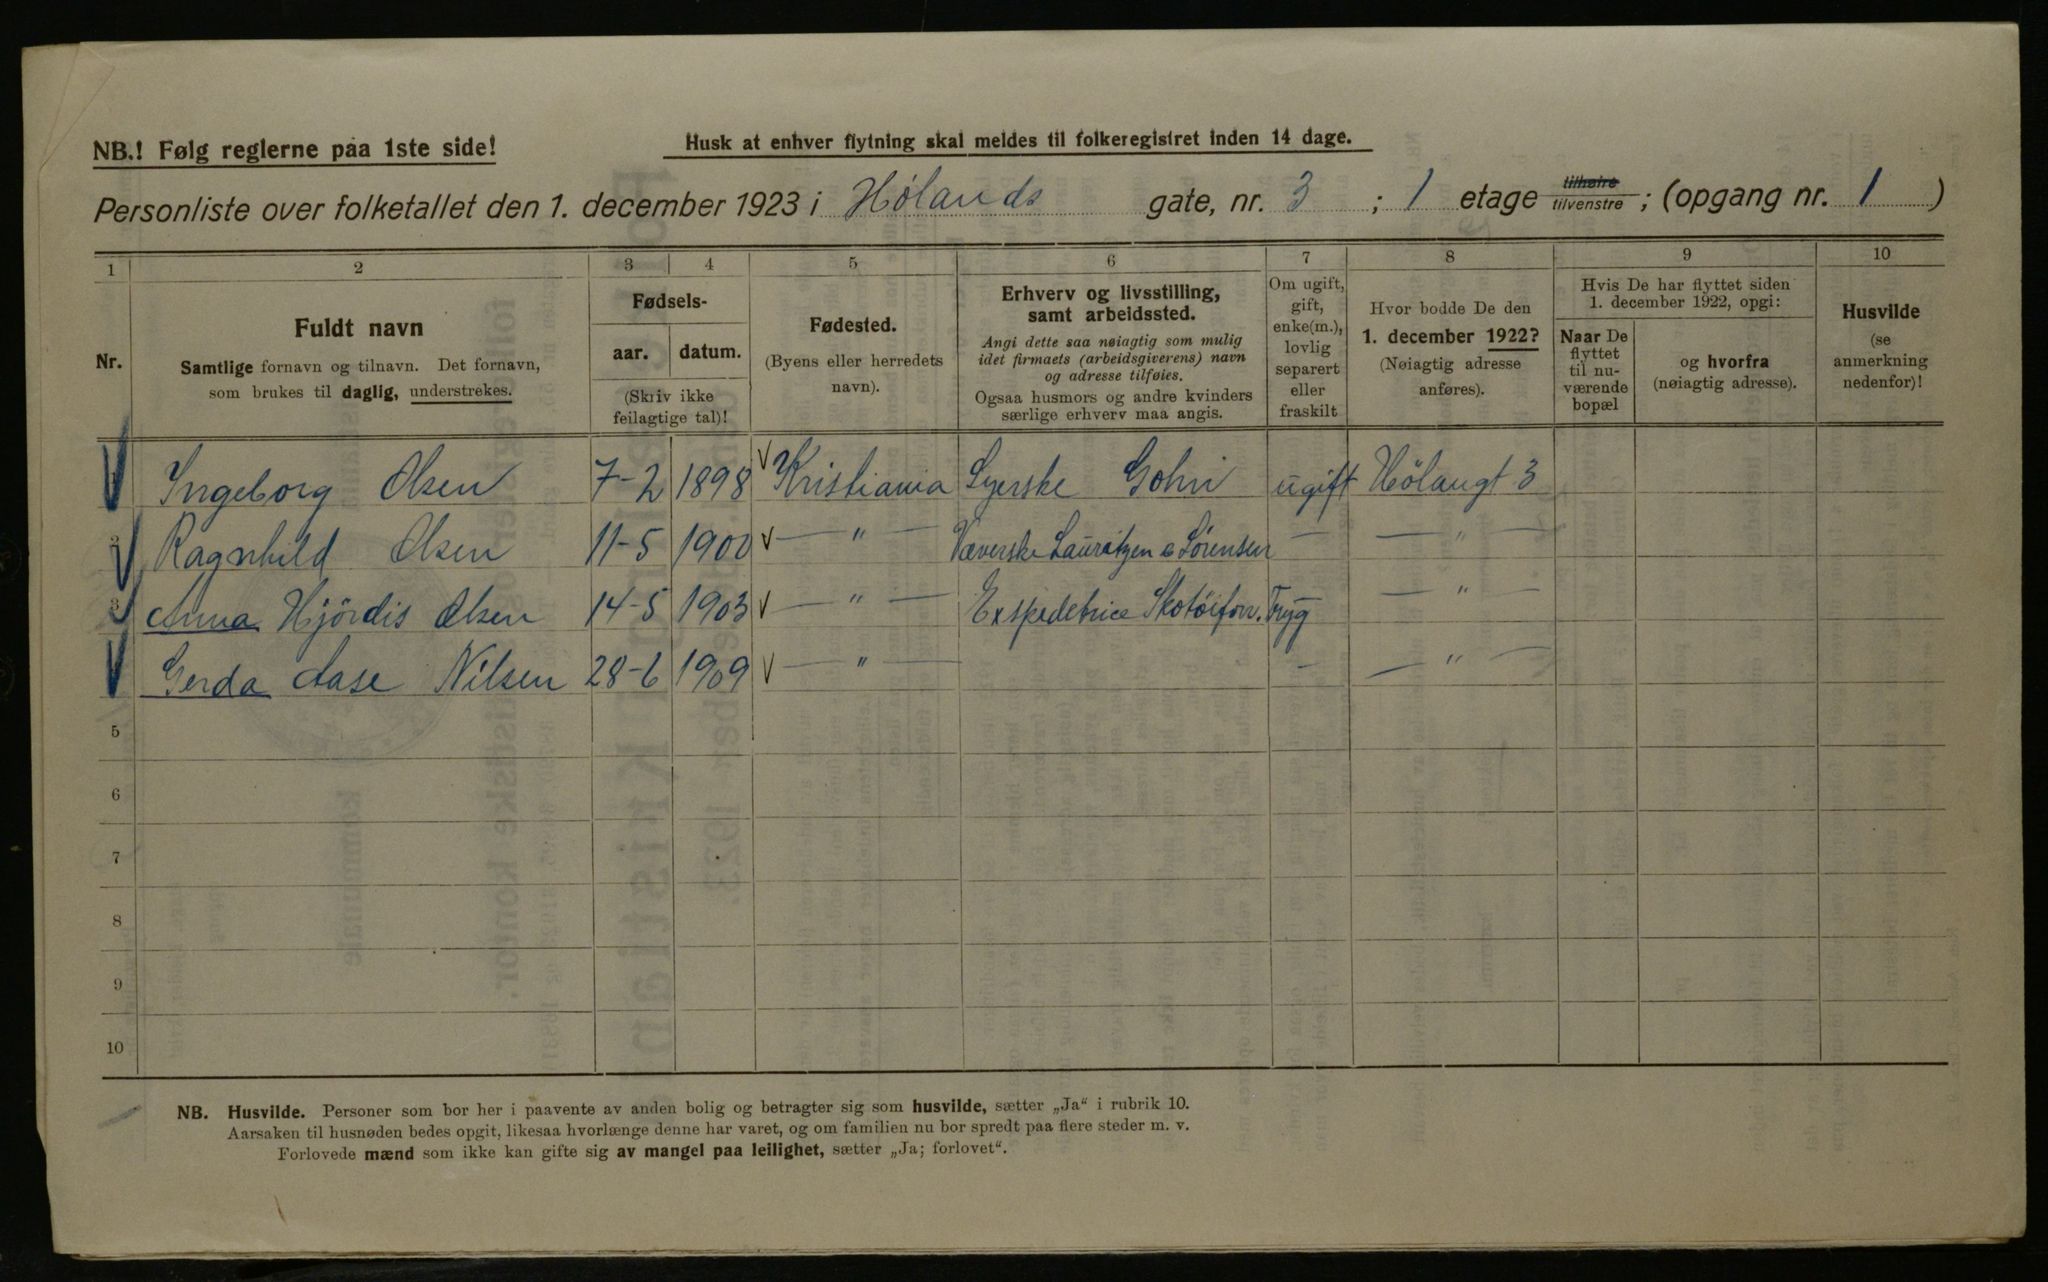 NB.! Følg reglerne paa 1ste side!
Husk at enhver flytning skal meldes til folkeregistret inden 14 dage.
Personliste over folketallet den 1. december 1923 i Hølands gate, nr. 3 ; 1 etage tilhøire tilvenstre ; (opgang nr. 1 )
1 2 3 4 5 6 7 8 9 10
Nr.
Fuldt navn
Samtlige fornavn og tilnavn. Det fornavn,
som brukes til daglig, understrekes.
Fødsels-
aar. datum.
(Skriv ikke
feilagtige tal)!
Fødested.
(Byens eller herredets
navn).
Erhverv og livsstilling,
samt arbeidssted.
Angi dette saa nøiagtig som mulig
idet firmaets (arbeidsgiverens) navn
og adresse tilføies.
Ogsaa husmors og andre kvinders
særlige erhverv maa angis.
Om ugift,
gift,
enke(m.),
lovlig
separert
eller
fraskilt
Hvor bodde De den
1. december 1922?
(Nøiagtig adresse
anføres).
Hvis De har flyttet siden
1. december 1922, opgi:
Naar De
flyttet
til nu-
værende
bopæl
og hvorfra
(nøiagtig adresse).
Husvilde
(se
anmerkning
nedenfor)!
Ingeborg Olsen 7-2 1898 Kristiania Syerske Gohn ugift Hölangt 3
2 Ragnhild Olsen 11-5 1900 — " — Væverske Lauritzen & Sørensen — — " —
3 Anna Hjördis Olsen 14-5 1903 — " — Expedetrice Sketöiforr. Tryg — — " —
Gerda Aase Nilsen 28-6 1909 — " — — — " —
5
6
7
8
9
10
NB. Husvilde. Personer som bor her i paavente av anden bolig og betragter sig som husvilde, sætter „Ja“ i rubrik 10.
Aarsaken til husnøden bedes opgit, likesaa hvorlænge denne har varet, og om familien nu bor spredt paa flere steder m. v.
Forlovede mænd som ikke kan gifte sig av mangel paa leilighet, sætter „Ja; forlovet“.